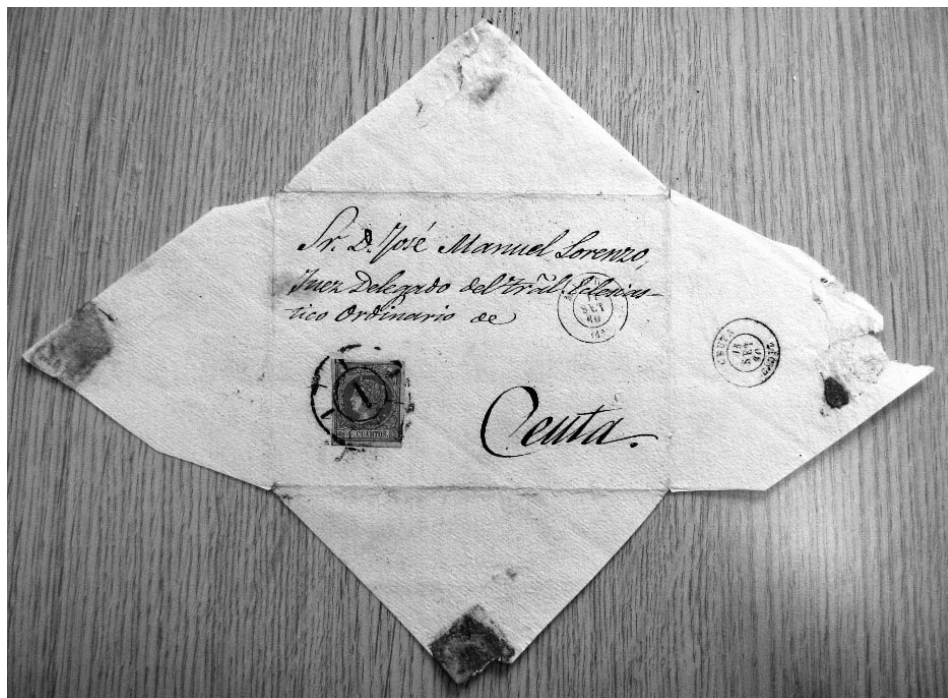 Sr. D. José Manuel Lorenzo,
Juez Delegado del Tral. Eclesias-
tico Ordinario de
Ceuta.
SET
60
CUARTOS
1
CEUTA
SET
60